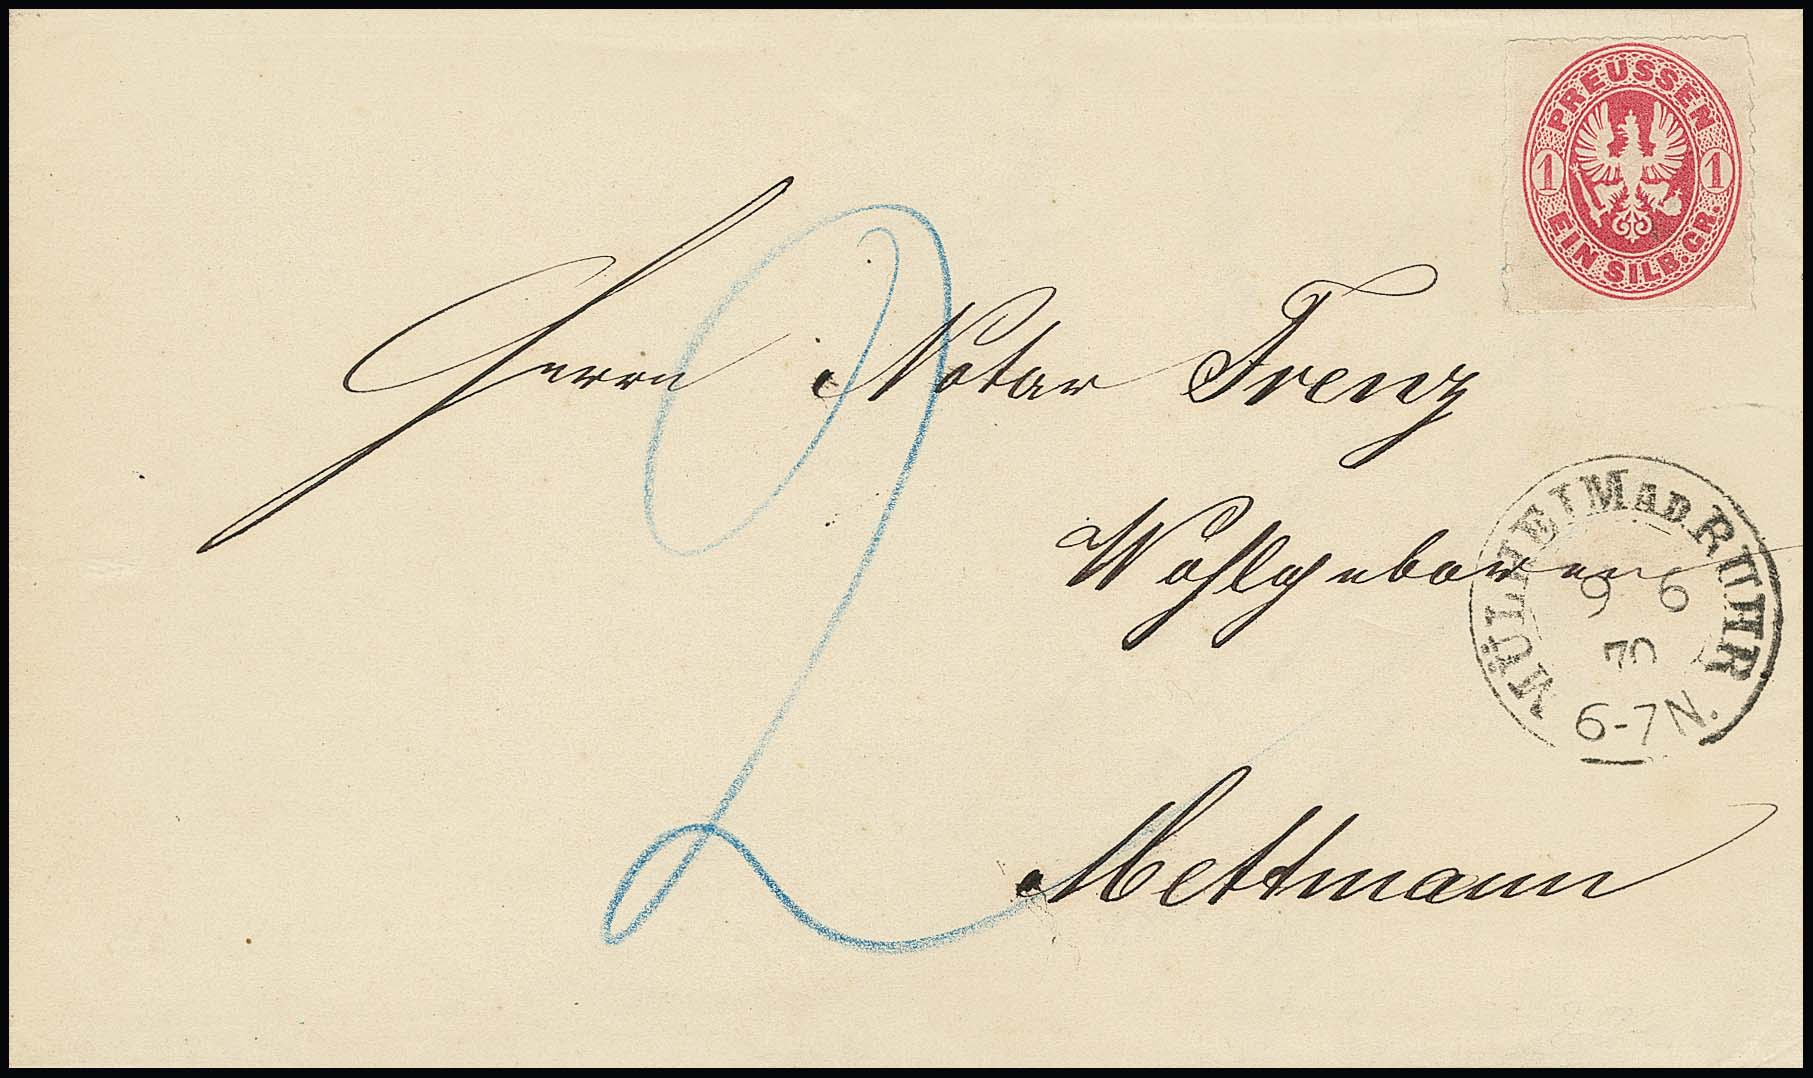 PREUSSEN
1 1
EIN SILB. GR.
Herrn Notar Frenz
Wohlgeboren
MÜLHEIM A D. RUHR
9 6
70
6-7 N.
Mettmann
2